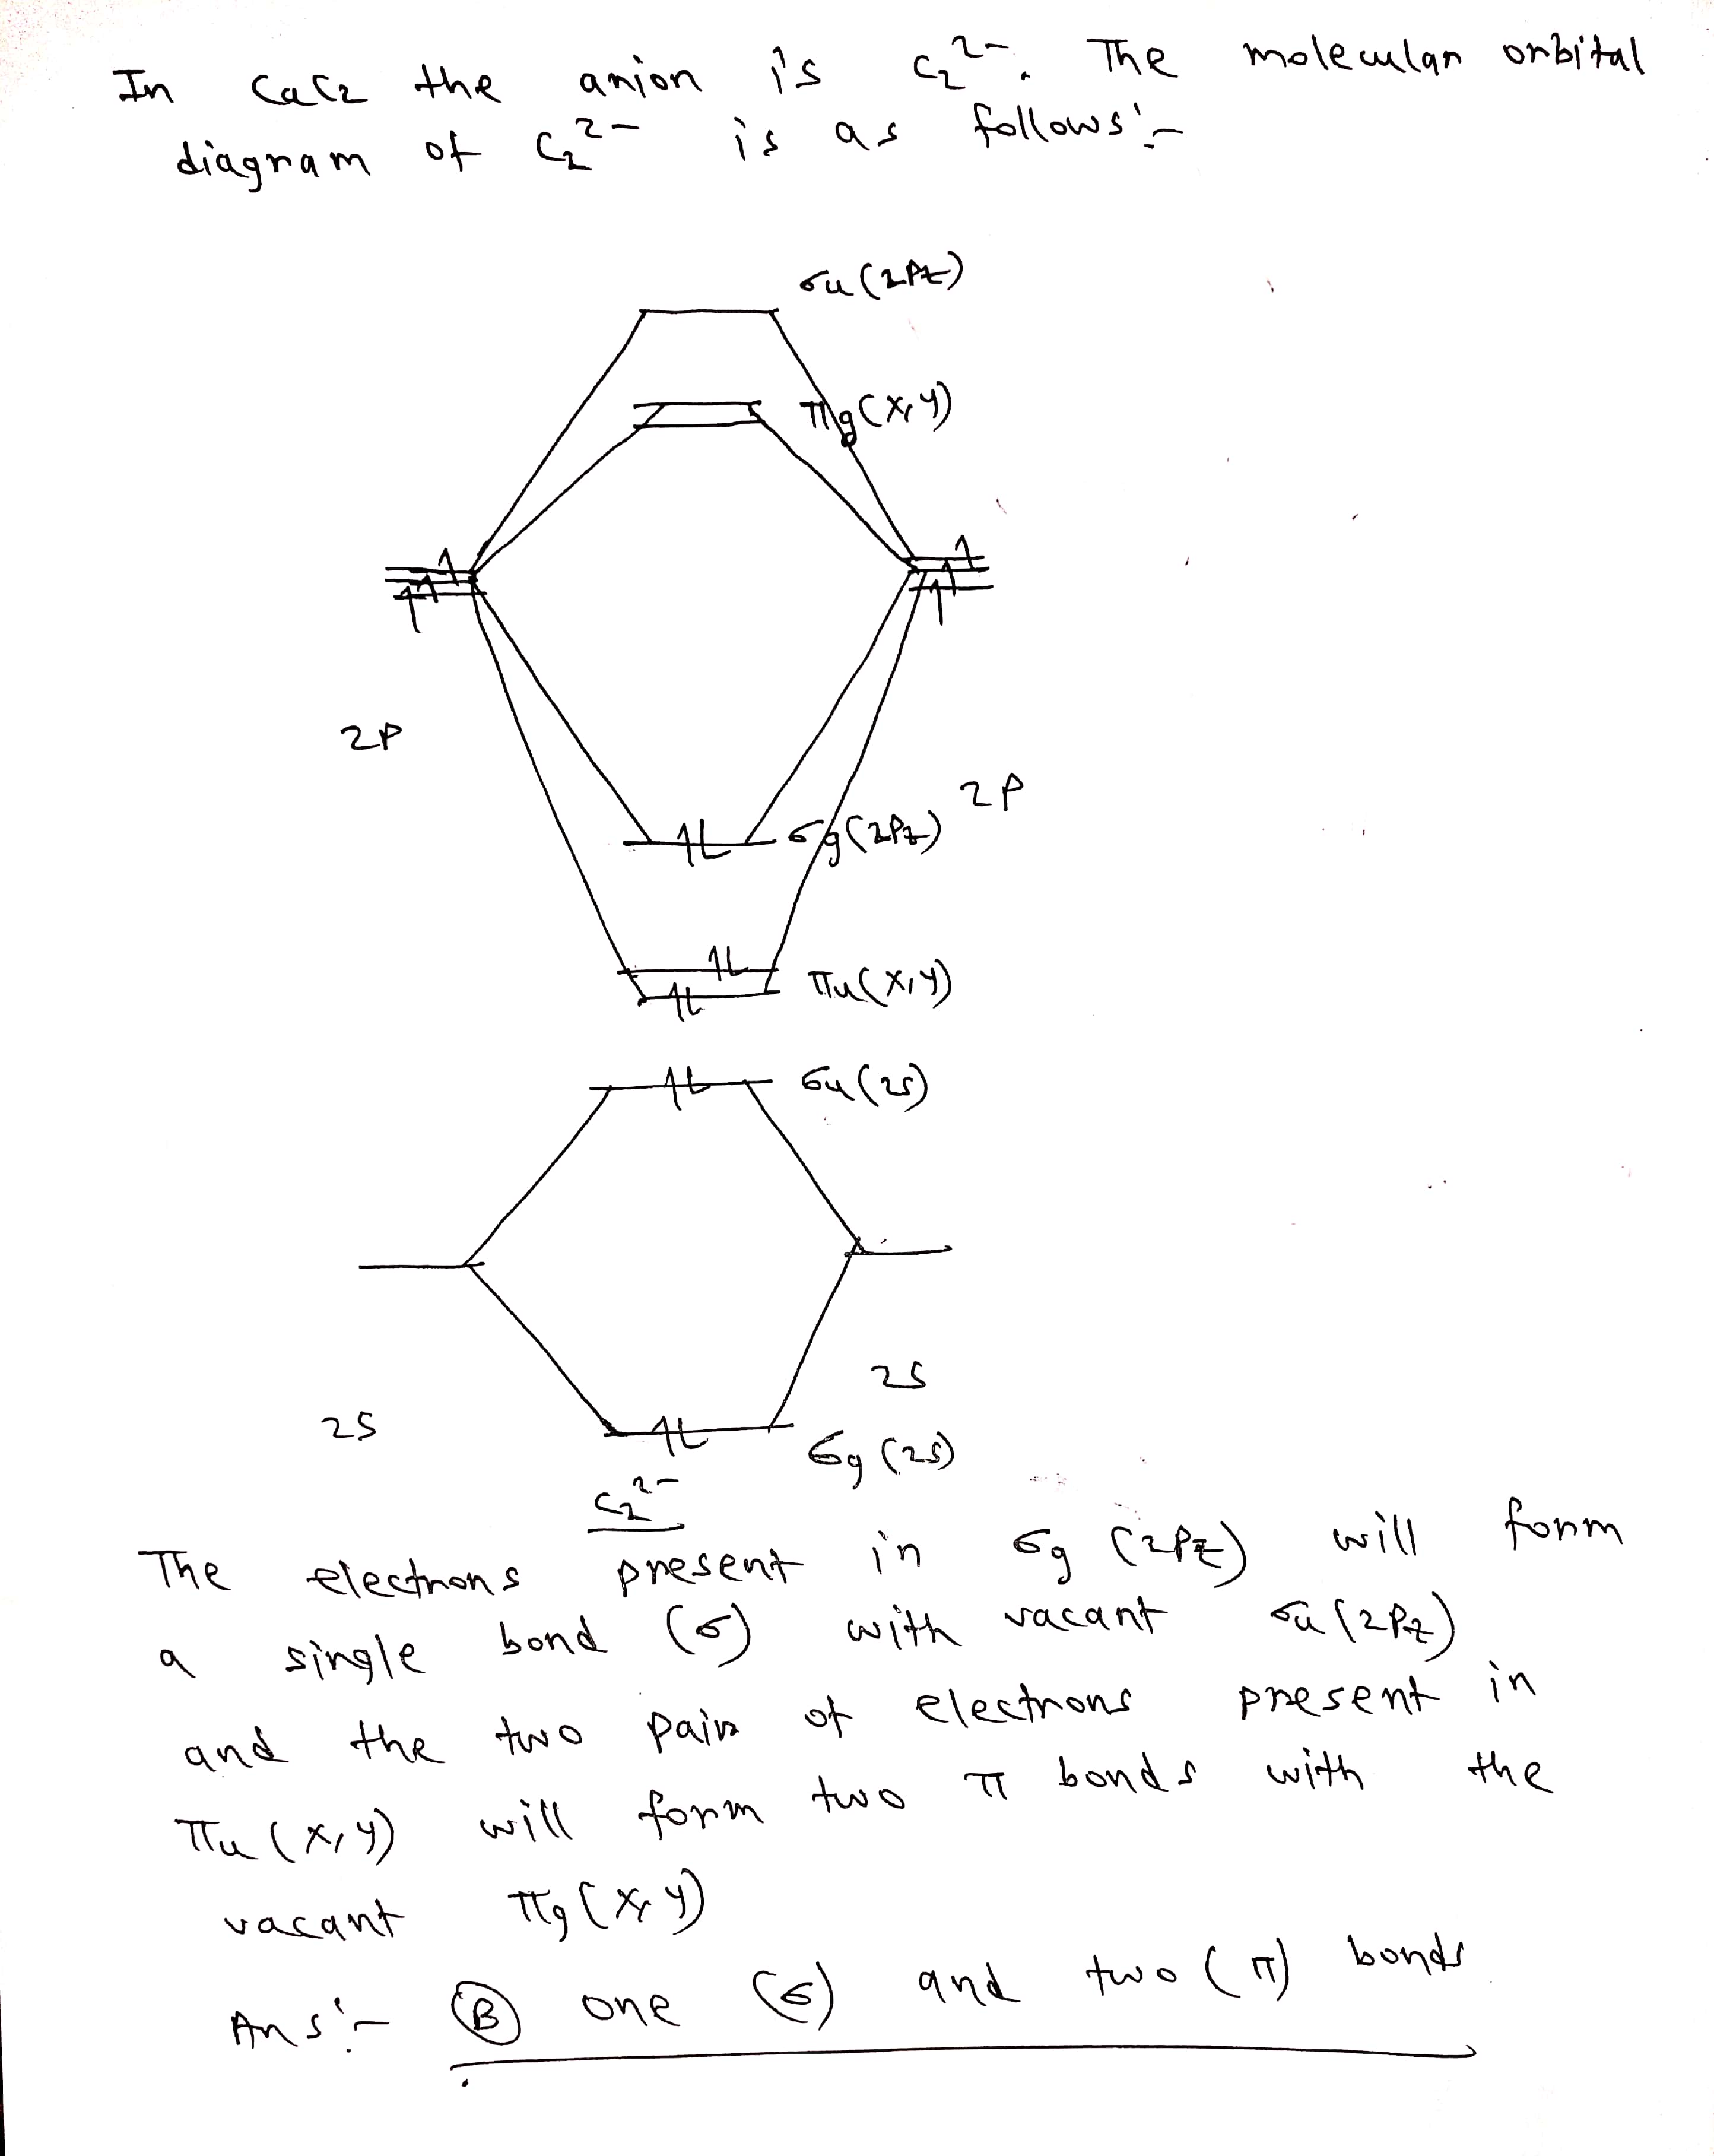 In CaC2 the anion is C2 2-. The molecular orbital
diagram of C2 2- is as follows:-
σu (2Pz)
πg (x,y)
2P
2P
σg (2Pz)
πu (x,y)
σu (2s)
2s
2s
σg (2s)
C2 2-
The electrons present in σg (2Pz) will form
a single bond (σ) with vacant σu (2Pz)
and the two pair of electrons present in
πu (x,y) will form two π bonds with the
vacant πg (x,y)
Ans:- (B) one (σ) and two (π) bonds